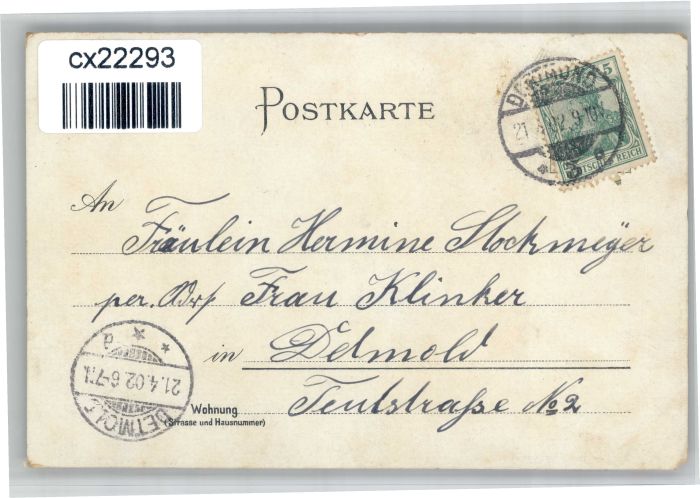 cx22293
POSTKARTE
DORTMUND
21.4.02.9-10V
5
DEUTSCHES REICH
An
Fräulein Hermine Stockmeyer
per. Adr. Frau Klinker
in Detmold
Wohnung
(Strasse und Hausnummer)
Teutstraße No 2
DETMOLD
21.4.02 6-7N.